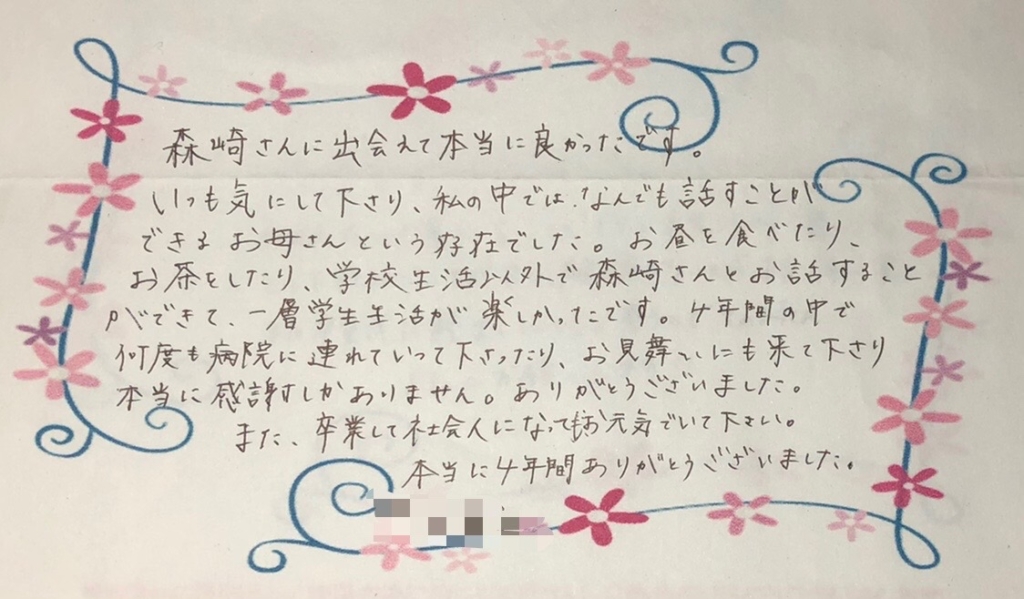 森崎さんに出会えて本当に良かったです。
いつも気にして下さり、私の中では、なんでも話すことが
できるお母さんという存在でした。お昼を食べたり、
お茶をしたり、学校生活以外で森崎さんとお話すること
ができて、一層学生生活が楽しかったです。4年間の中で
何度も病院に連れていって下さったり、お見舞いにも来て下さり
本当に感謝しかありません。ありがとうございました。
また、卒業して社会人になってもお元気でいて下さい。
本当に4年間ありがとうございました。